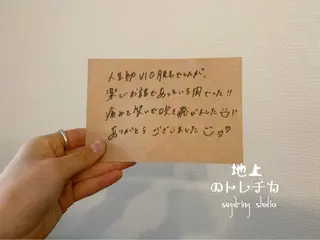 人生初VIO脱毛でしたが、
楽しいお話であっという間でした!!
痛みも笑いで吹き飛びました!!
ありがとうございました♡
地上
のトレチカ
sugaring studio